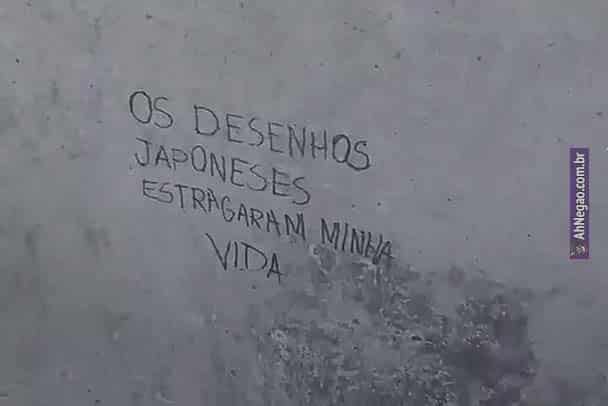 OS DESENHOS
JAPONESES
ESTRAGARAM MINHA
VIDA
AhNegao.com.br